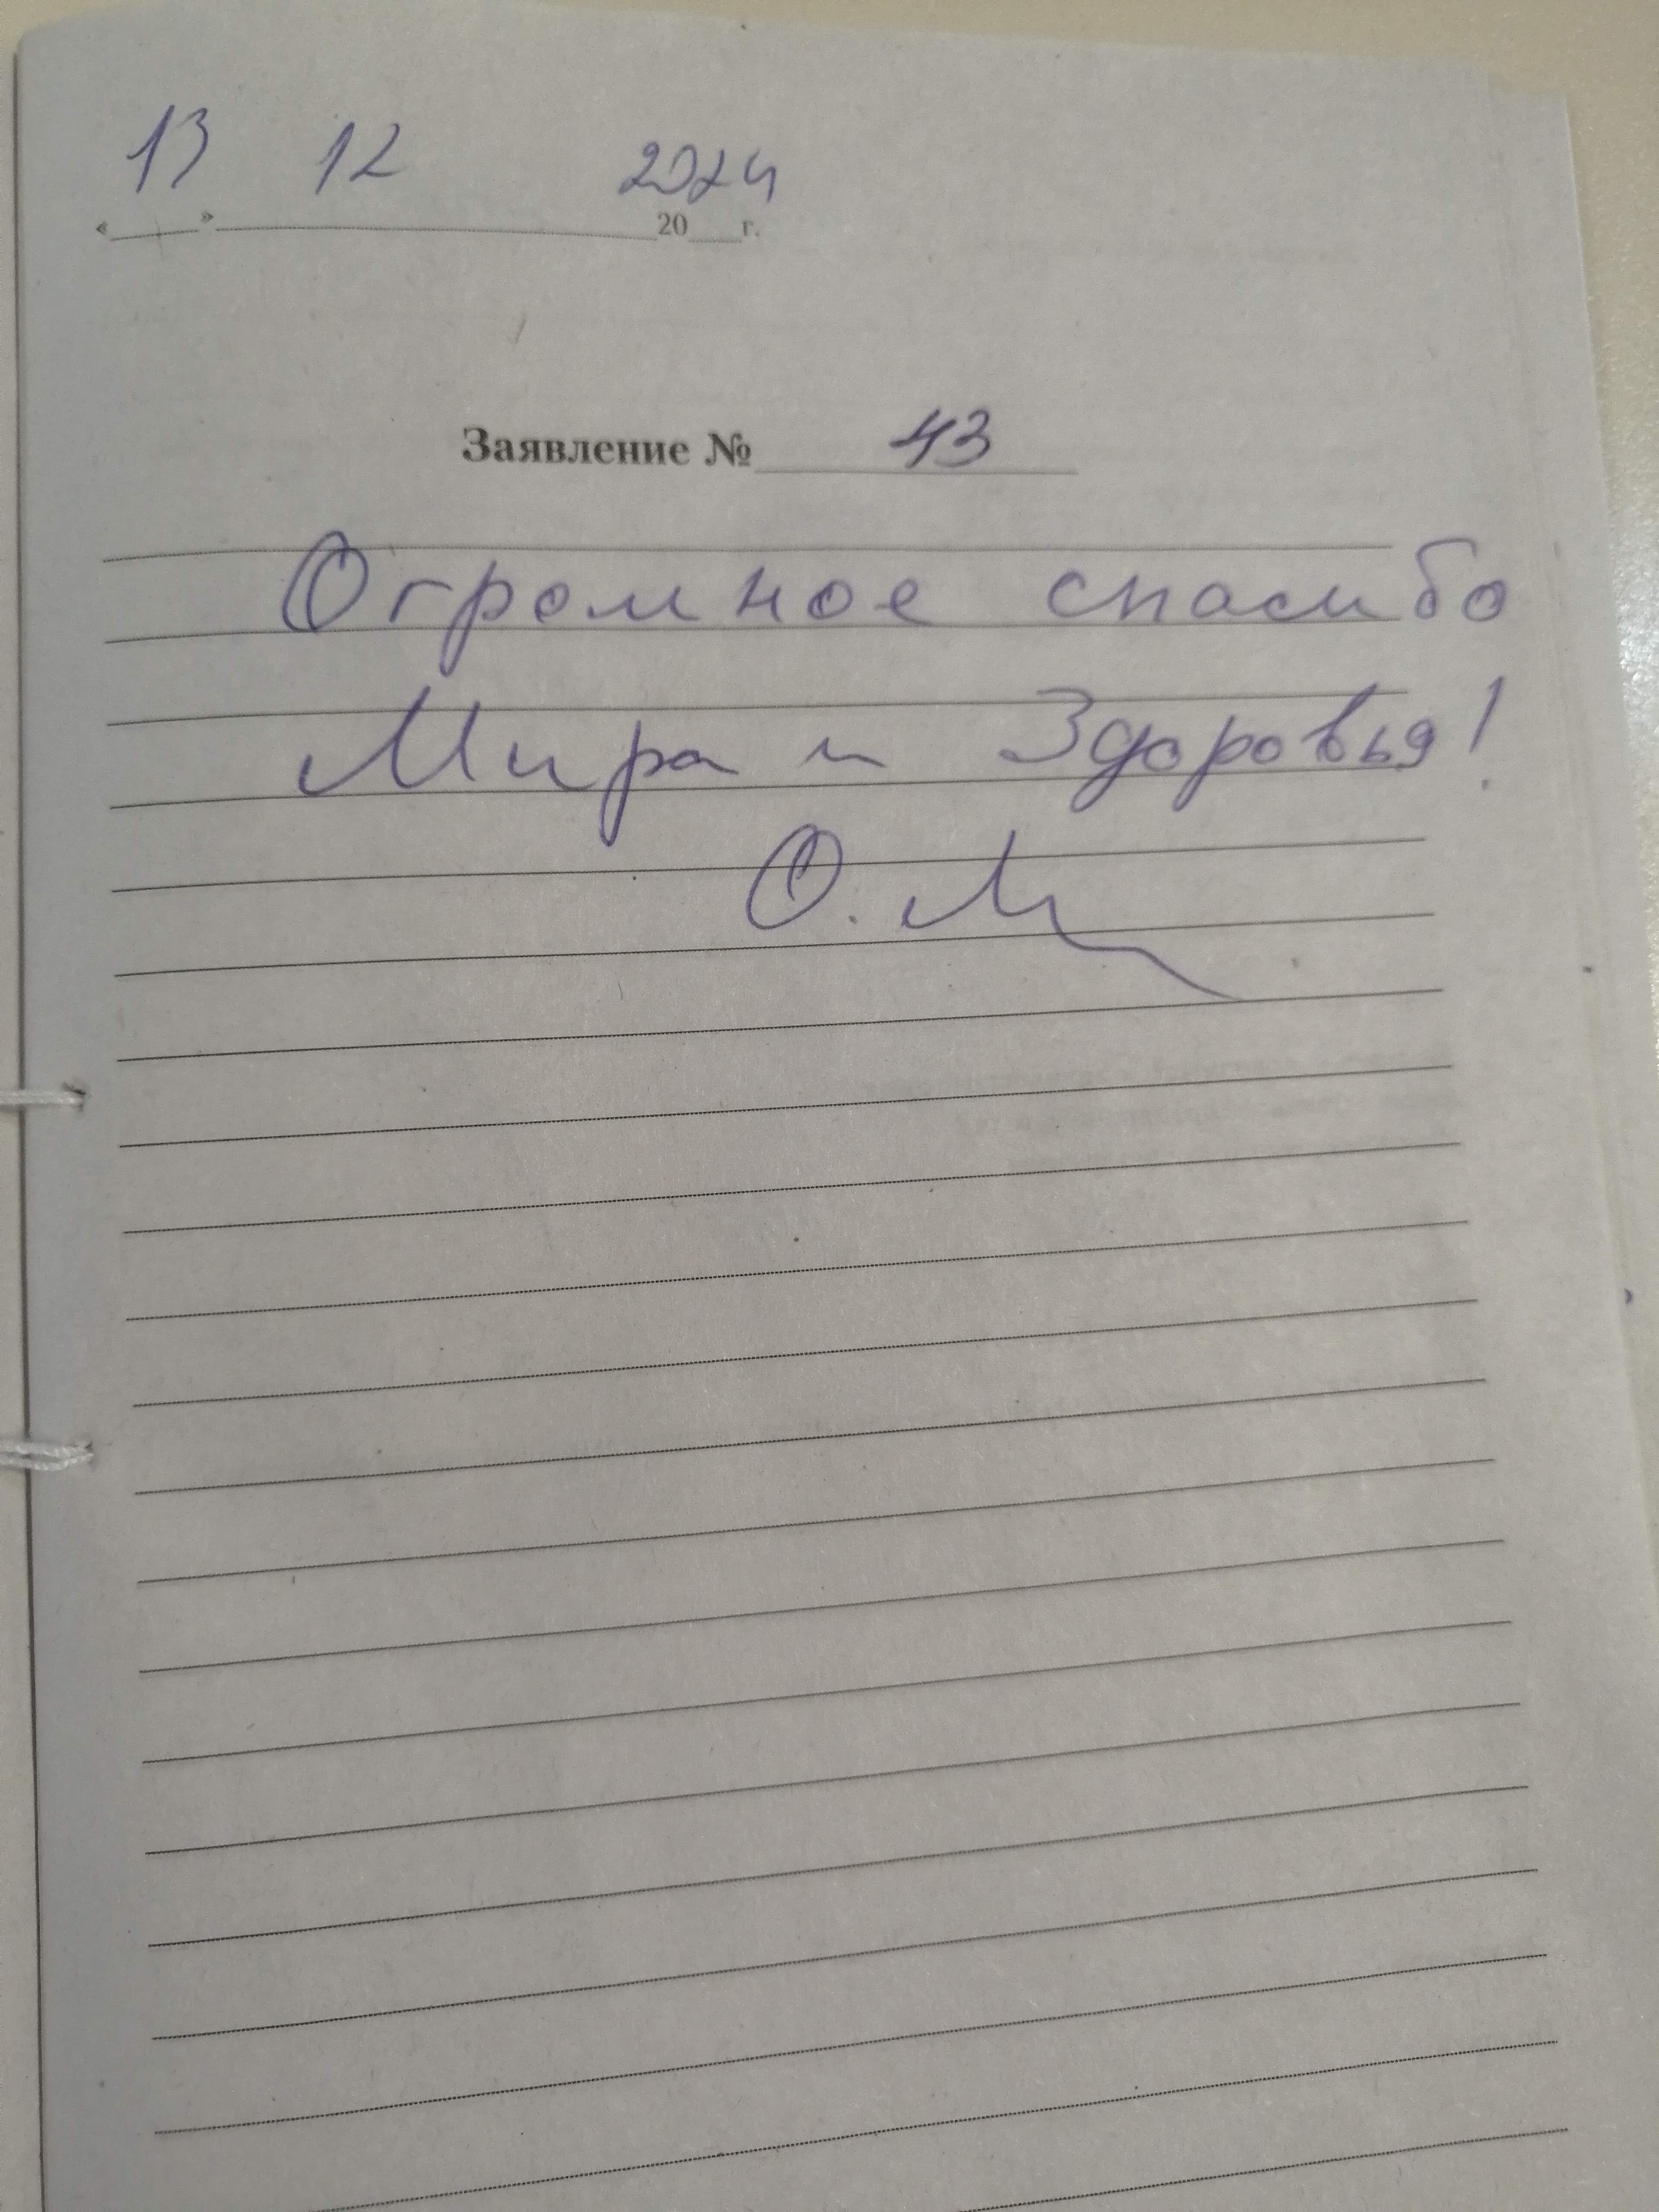 13 12 2024
«____»____________________20___г.
Заявление № 43
Огромное спасибо
Мира и Здоровья!
О. М